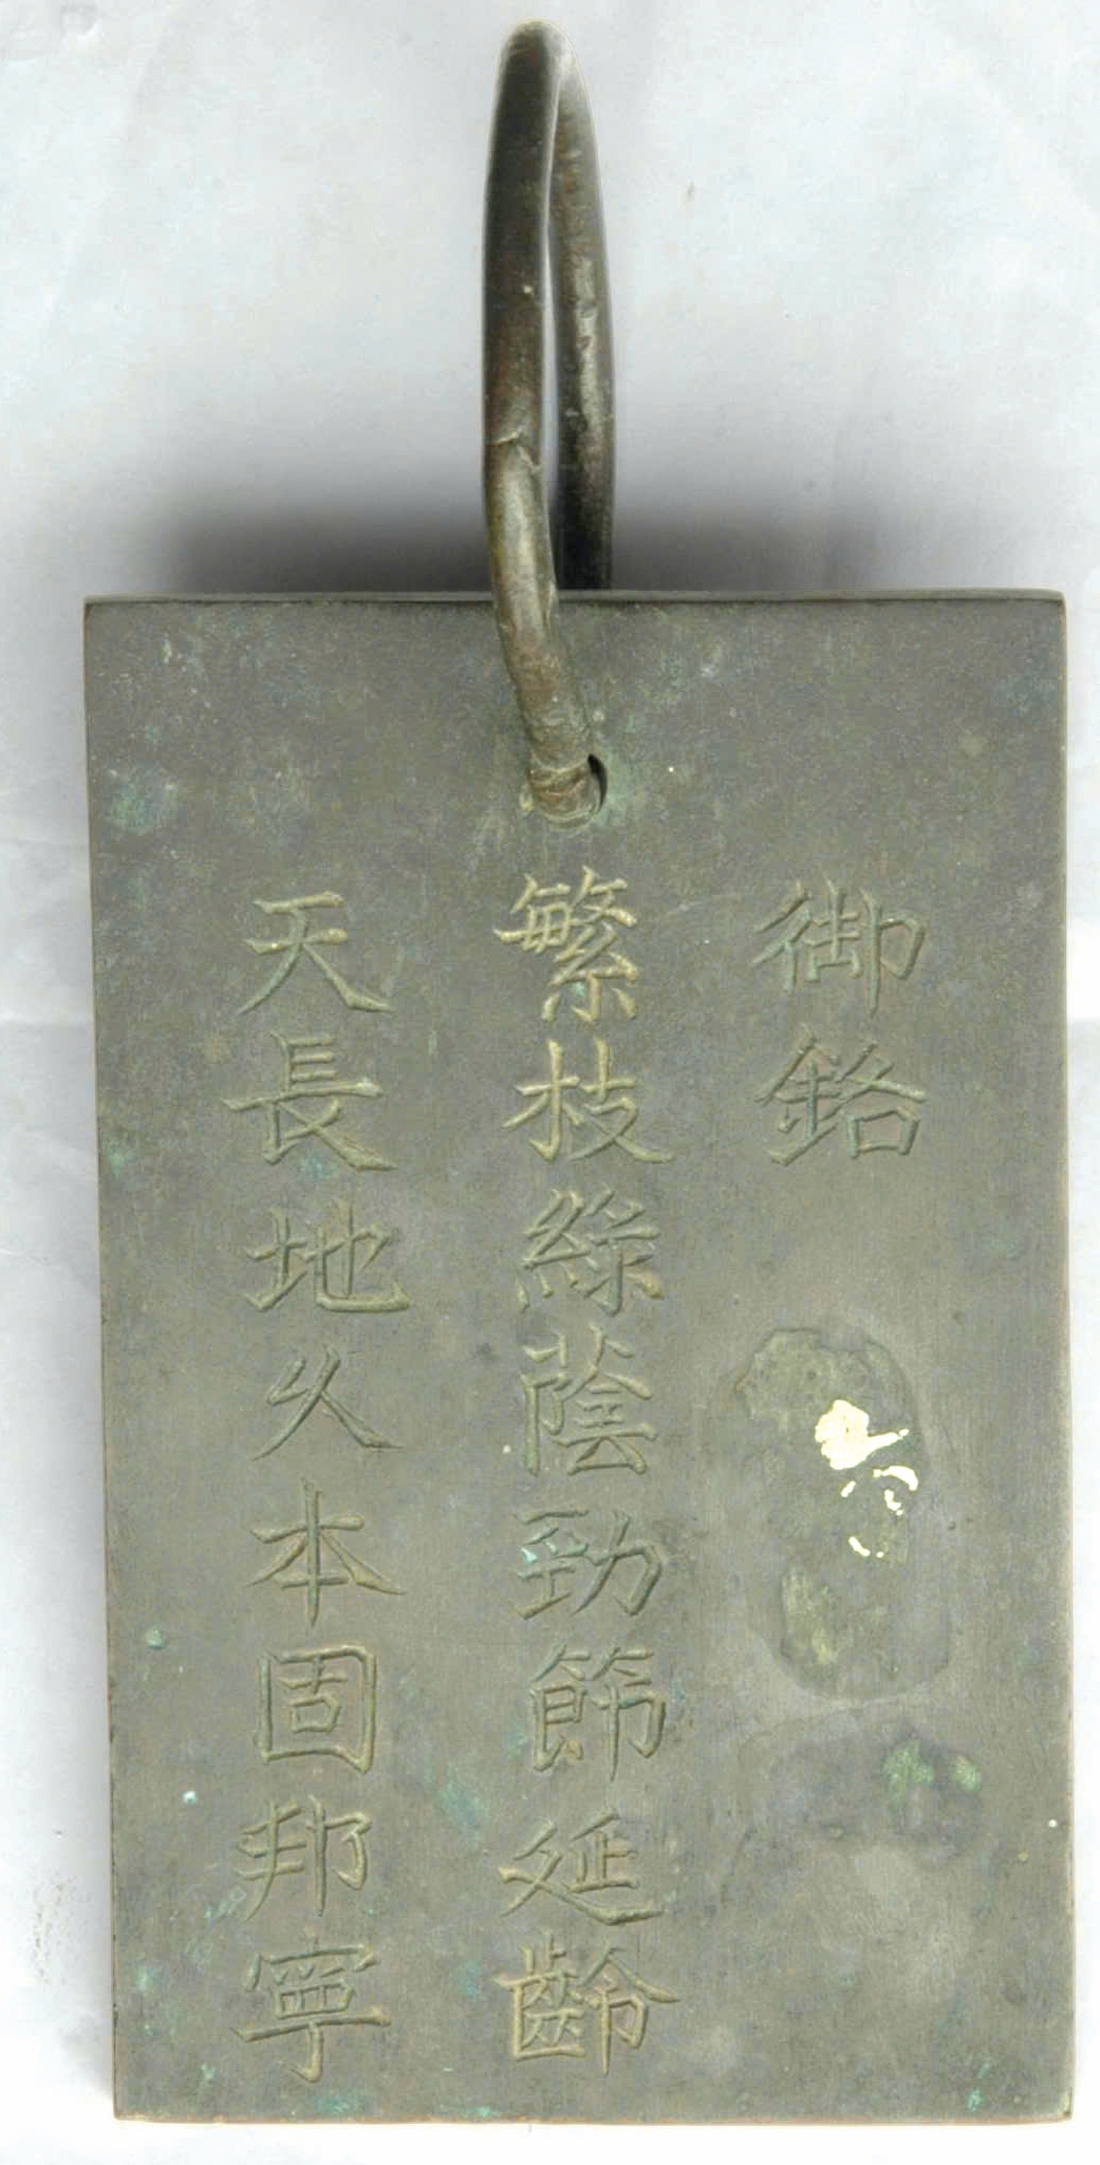 御鉻
繁枝綠蔭勁節延齡
天長地久本固邦寧